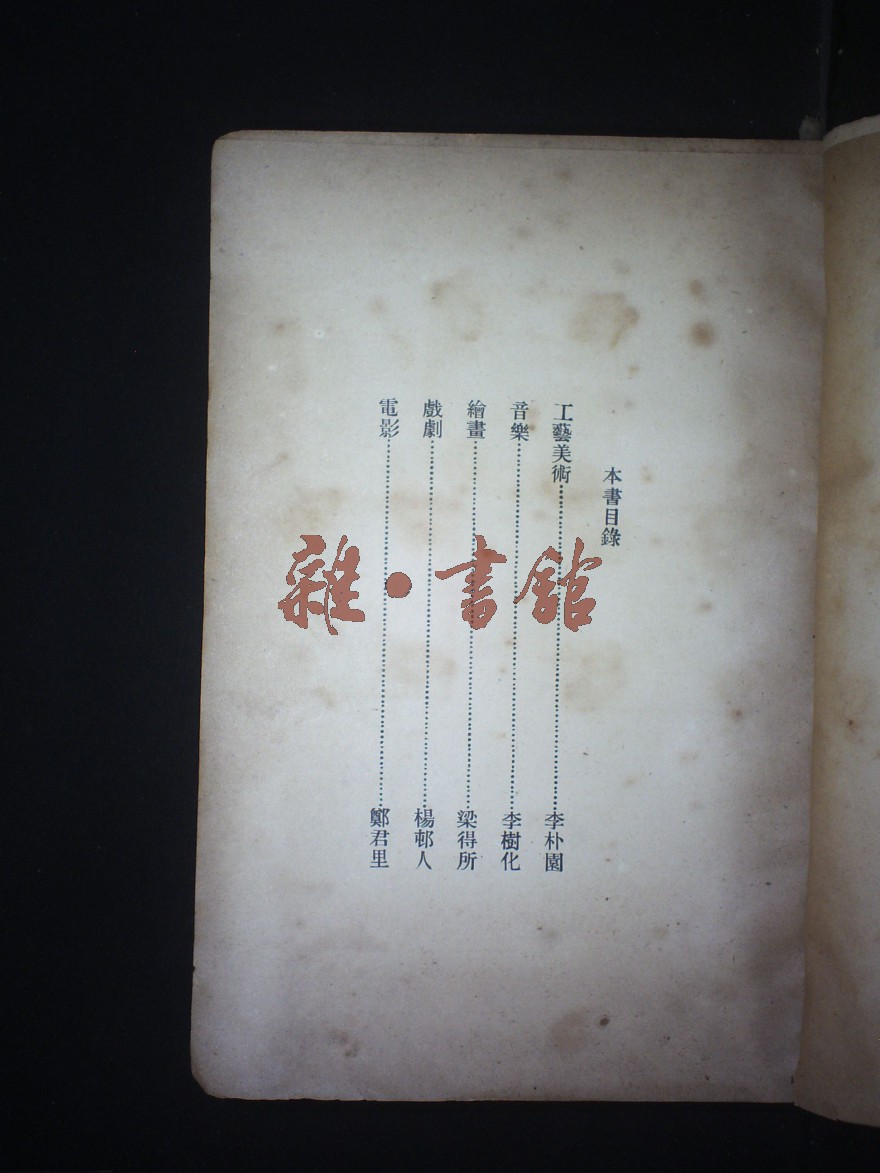 本書目錄
工藝美術……李朴園
音樂……李樹化
繪畫……梁得所
戲劇……楊邨人
電影……鄭君里
雜·書館